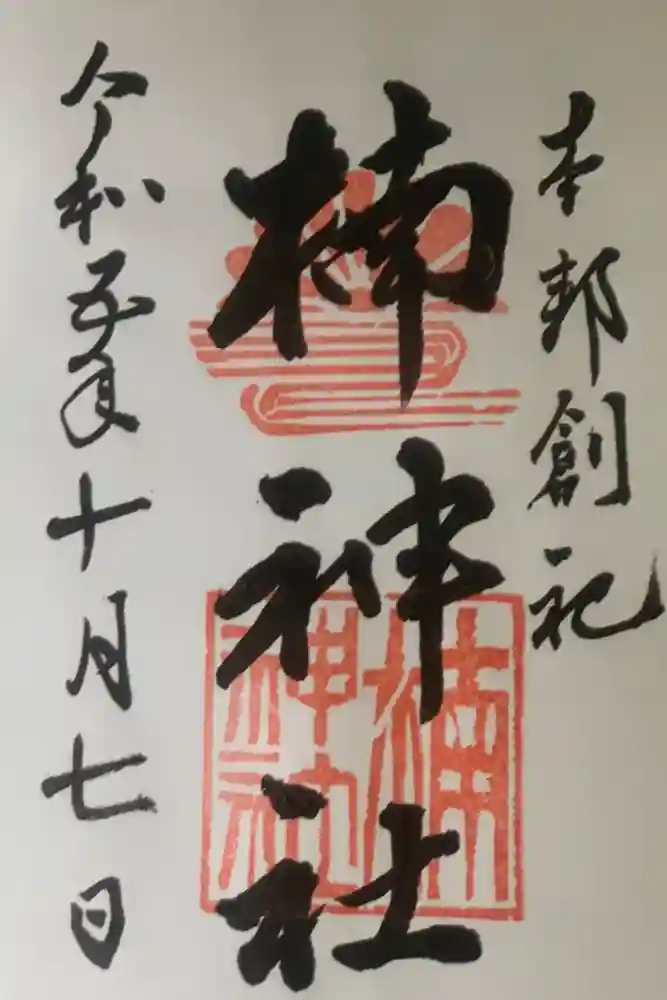 本邦創祀
楠神社
楠
神社
令和五年十月七日